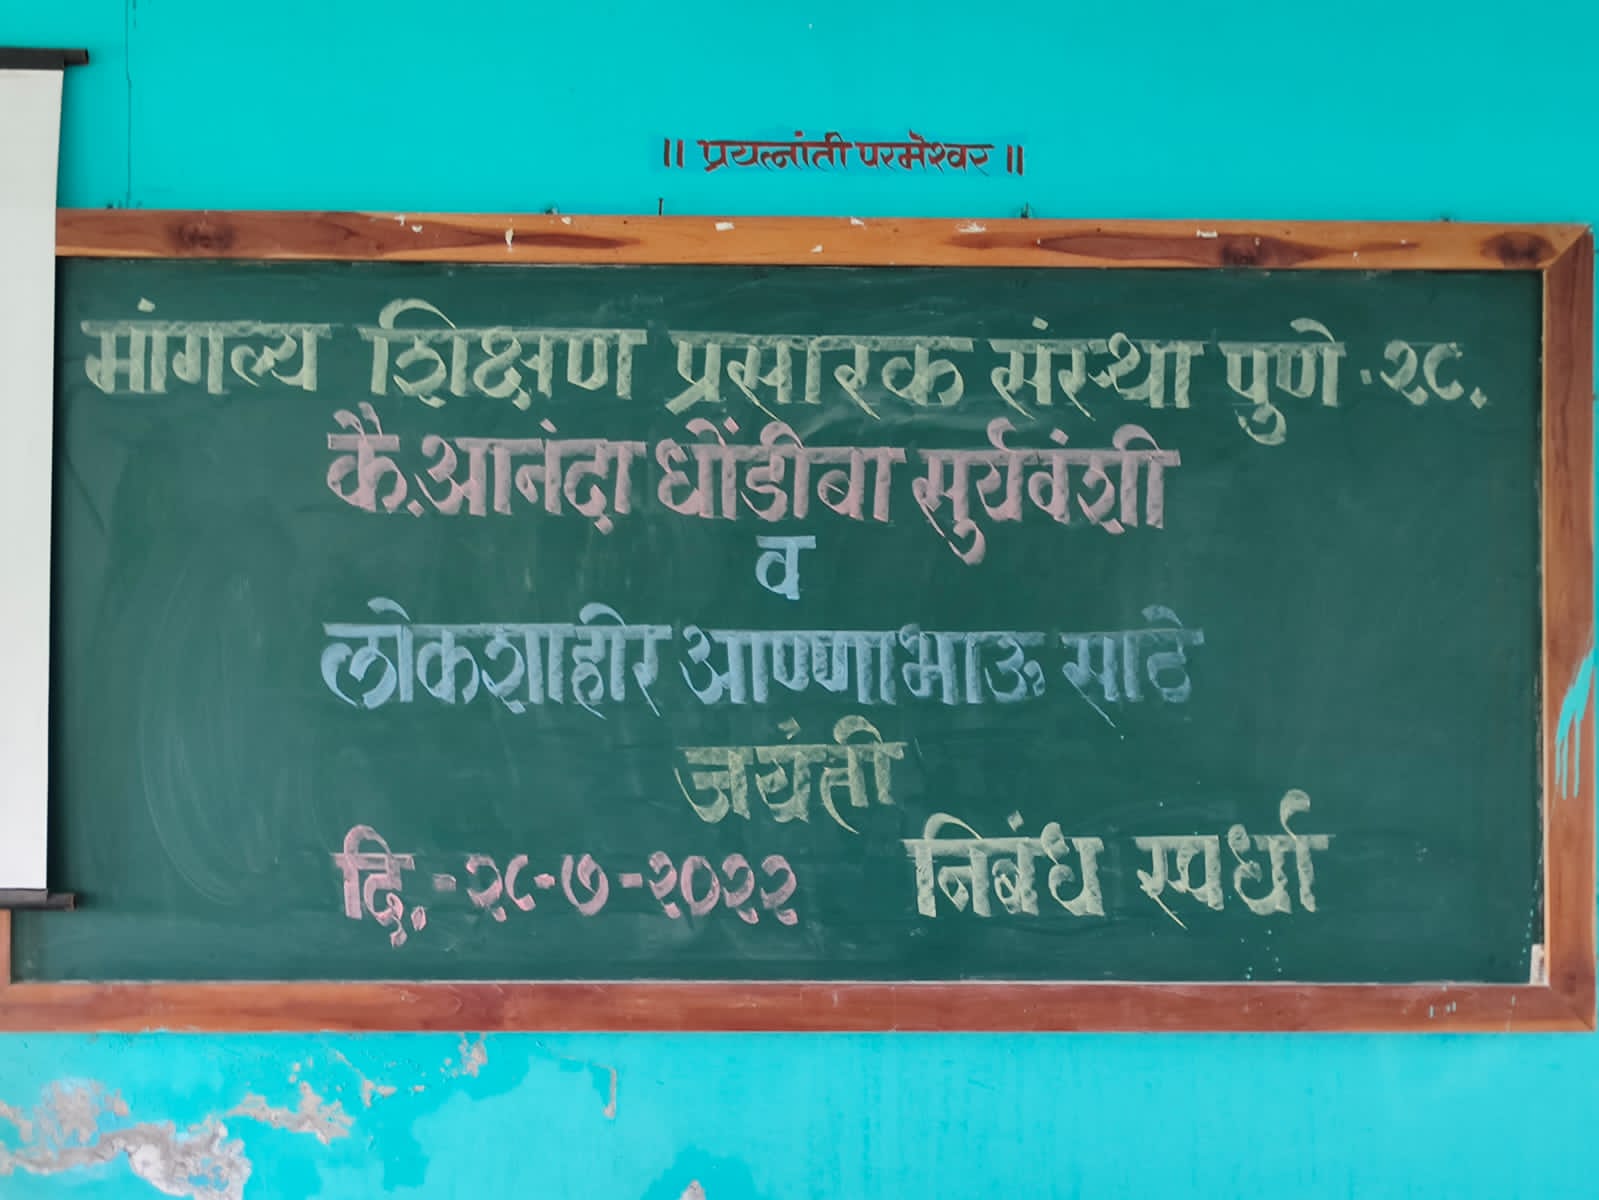 ॥ प्रयत्नांती परमेश्वर ॥
मांगल्य शिक्षण प्रसारक संस्था पुणे -२८.
कै.आनंदा धोंडीबा सुर्यवंशी
व
लोकशाहीर आण्णाभाऊ साठे
जयंती
दि.-२८-७-२०२२ निबंध स्पर्धा